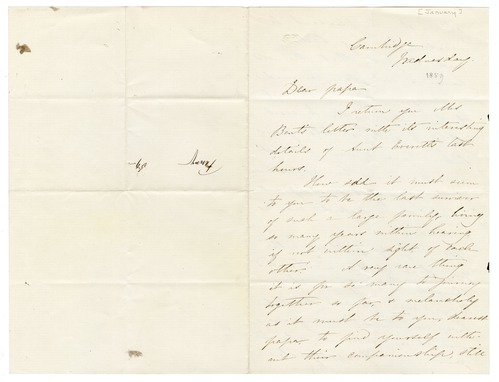 [January]
Cambridge
Wednesday.
1859
Dear papa
I return you Mrs
letter with its interesting
details of Aunt last
hours.
How odd it must seem
to you to be the last survivor
of such a large family, living
so many years within hearing
if not within sight of each
other. A very rare thing
it is for so many to journey
together so far & melancholy
as it must be to you, dearest
papa to find yourself with-
out their companionship, still